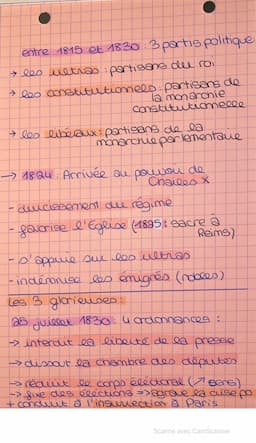 entre 1815 et 1830 : 3 partis politique
→ les ultras : partisans du roi
→ les constitutionnels : partisans de
la monarchie
constitutionnelle
→ les libéraux : partisans de la
monarchie parlementaire
→ 1824 : Arrivée au pouvoir de
Charles X
- durcissement du régime
- favorise l'Église (1825 : sacre à
Reims)
- s'appuie sur les ultras
- indemnise les émigrés (nobles)
Les 3 glorieuses :
25 juillet 1830 : 4 ordonnances :
→ interdit la liberté de la presse
→ dissout la chambre des députés
→ réduit le corps électoral (↗ cens)
→ fixe des élections => aggrave la crise po
+ conduit à l'insurrection à Paris
Scanné avec CamScanner